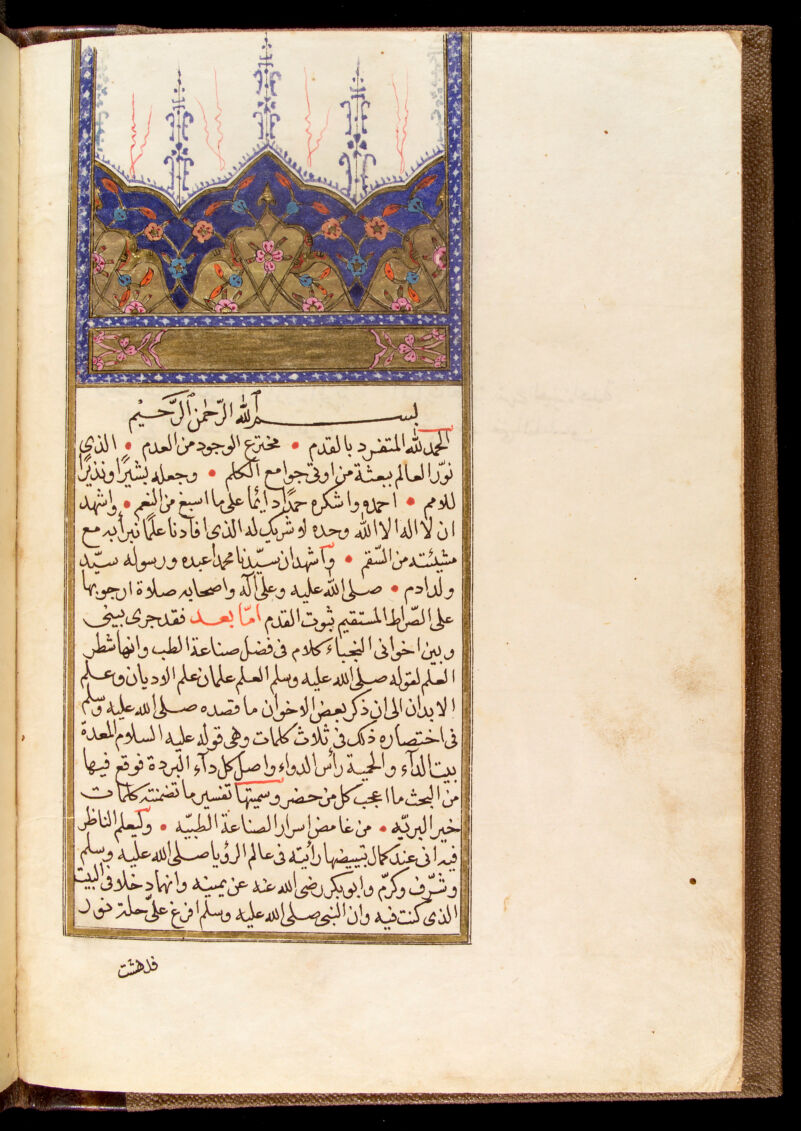 بسم الله الرّحمن الرّحيم
الحمد لله المتفرد بالقدم • مخترع الوجود من العدم • الذى
نوّر العالم ببعثة من اوتى جوامع الكلم • وجعله بشيرًا ونذيرًا
للامم • احمده واشكره حمدًا دائمًا على ما اسبغ من النعم • واشهد
ان لا اله الا الله وحده لا شريك له الذى افادنا علمًا نبرأ به مع
مشيئته من السّقم • وأشهد ان سيّدنا محمدا عبده ورسوله سيّد
ولد ادم • صلى الله عليه وعلى آله واصحابه صلاة ارجو بها
على الصّراط المستقيم ثبوت القدم امّا بعد فقد جرى بينى
وبين اخوانى النجباء كلام فى فضل صناعة الطب وانها شطر
العلم لقوله صلى الله عليه وسلم العلم علمان علم الاديان وعلم
الابدان الى ان ذكر بعض الاخوان ما قصده صلى الله عليه وسلم
فى اختصاره ذلك فى ثلاث كلمات وهى قوله عليه السلام المعدة
بيت الدآء والحمية رأس الدواء واصل كل دآء البردة فوقع فيها
من البحث ما اعجب كل من حضر وسميتها تفسير ما تضمنته كلمات
خير البريّه • من غامض اسرار الصناعة الطبيّه • وليعلم الناظر
فيه انى عند كمال تبييضها رأيته فى عالم الرؤيا صلى الله عليه وسلم
وشرّف وكرّم وابو بكر رضى الله عنه عن يمينه وانهما دخلا فى البيت
الذى كنت فيه وان النبى صلى الله عليه وسلم افرغ علىّ حلة نور
فدهشت